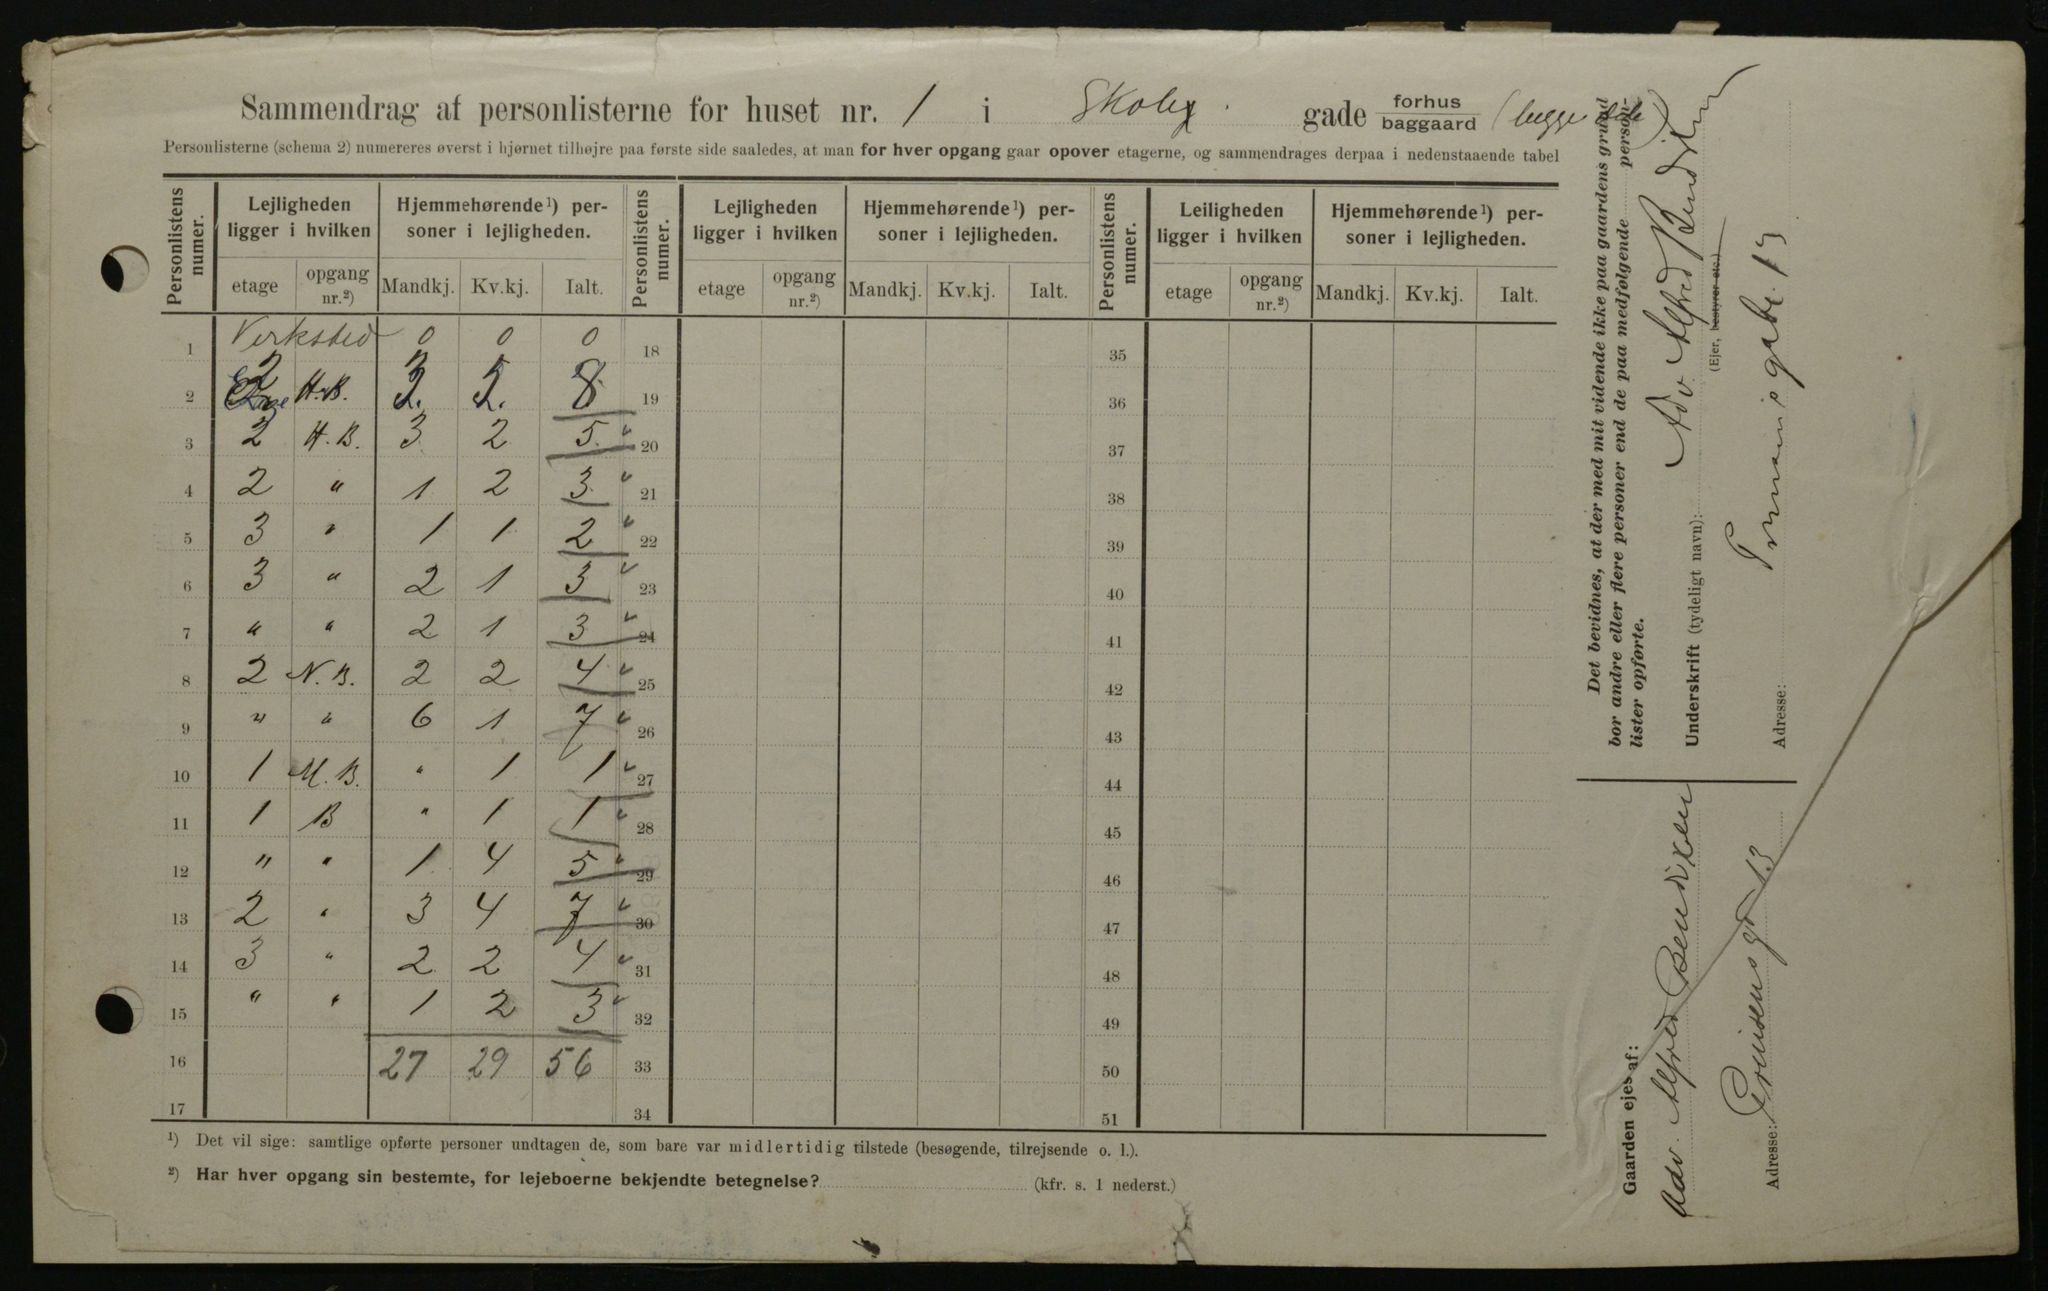 Sammendrag af personlisterne for huset nr. 1 i gade forhus baggaard
Personlisterne (schema 2) numereres øverst i hjørnet tilhøjre paa første side saaledes, at man for hver opgang gaar opover etagerne, og sammendrages derpaa i nedenstaaende tabel
Personlistens numer. Lejligheden ligger i hvilken Hjemmehørende¹) personer i lejligheden. Personlistens numer. Lejligheden ligger i hvilken Hjemmehørende¹) personer i lejligheden. Personlistens numer. Leiligheden ligger i hvilken Hjemmehørende¹) personer i lejligheden.
etage opgang nr.²) Mandkj. Kv.kj. Ialt. etage opgang nr.²) Mandkj. Kv.kj. Ialt. etage opgang nr.²) Mandkj. Kv.kj. Ialt.
1 Verksted 0 0 0 18 35
2 2 H.B. 3. 5. 8 19 36
3 2 H.B. 3 2 5 20 37
4 2 " 1 2 3 21 38
5 3 " 1 1 2 22 39
6 3 " 2 1 3 23 40
7 " " 2 1 3 24 41
8 2 N.B. 2 2 4 25 42
9 " " 6 1 7 26 43
10 1 M.B. " 1 1 27 44
11 1 B " 1 1 28 45
12 " " 1 4 5 29 46
13 2 " 3 4 7 30 47
14 3 " 2 2 4 31 48
15 " " 1 2 3 32 49
16 27 29 56 33 50
17 34 51
¹) Det vil sige: samtlige opførte personer undtagen de, som bare var midlertidig tilstede (besøgende, tilrejsende o. l.).
²) Har hver opgang sin bestemte, for lejeboerne bekjendte betegnelse? (kfr. s. 1 nederst.)
Det bevidnes, at der med mit vidende ikke paa gaardens grund
bor andre eller flere personer end de paa medfølgende person-
lister opførte.
Underskrift (tydeligt navn): Adv Alfred Bendixen
(Ejer, bestyrer etc.)
Adresse:
Gaarden ejes af:
Adv. Alfred Bendixen
Adresse: Prinsens gd 13